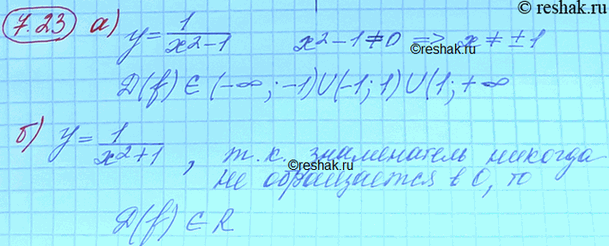 reshak.ru
7.23 а) y = 1/(x²-1) x²-1≠0 => x≠±1
reshak.ru
D(f) ∈ (-∞; -1)∪(-1; 1)∪(1; +∞
б) y = 1/(x²+1), т.к. знаменатель никогда
reshak.ru
не обращается в 0, то
D(f) ∈ R
reshak.ru